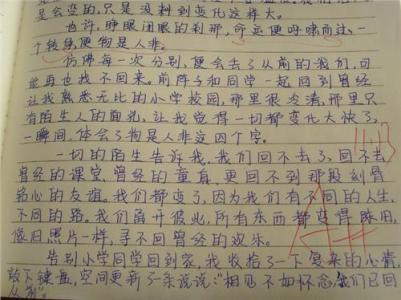 是会变的,只是没料到变化这样大。
也许,睁眼闭眼的刹那,命运便呼啸而过,一
个转身,便物是人非。
仿佛每一次分别,便会去了从前的我们,可
能再也找不回来。前阵子和同学一起回到曾经
让我熟悉无比的小学校园,那里很冷清,那里只
有陌生人的面孔,让我觉得一切都变化太快了,
一瞬间,体会了物是人非这四个字。
一切的陌生告诉我,我们回不去了,回不去
曾经的课堂,曾经的童真,更回不到那段刻骨
铭心的友谊。我们都变了,因为我们有不同的人生,
不同的路。我们离开彼此,所有东西都变得陈旧,
像旧照片一样,寻不回曾经的欢乐。
告别小学同学回到家,我收拾了一下复杂的小情,
敲下键盘,空间更新了一条说说:“相见不如怀念,我们已回
不